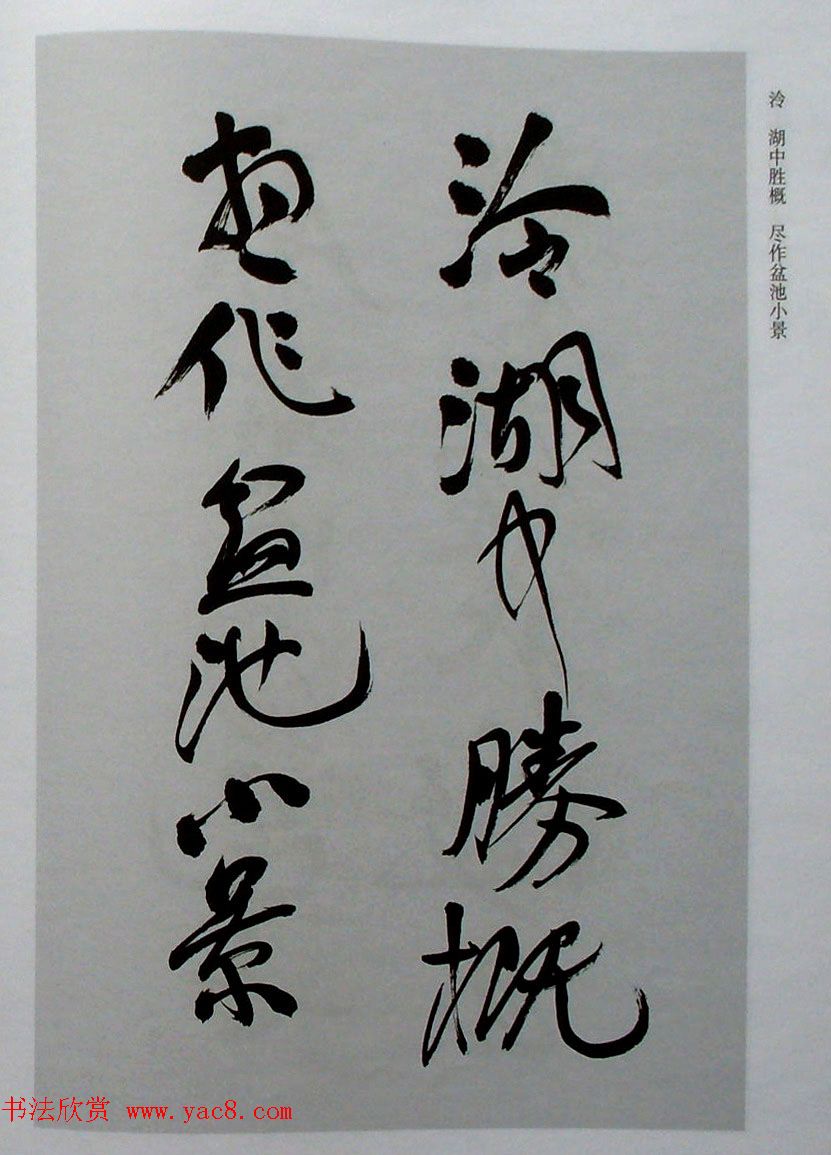 泠湖中勝概
盡作盆池小景
泠 湖中胜概 尽作盆池小景
书法欣赏 www.yac8.com